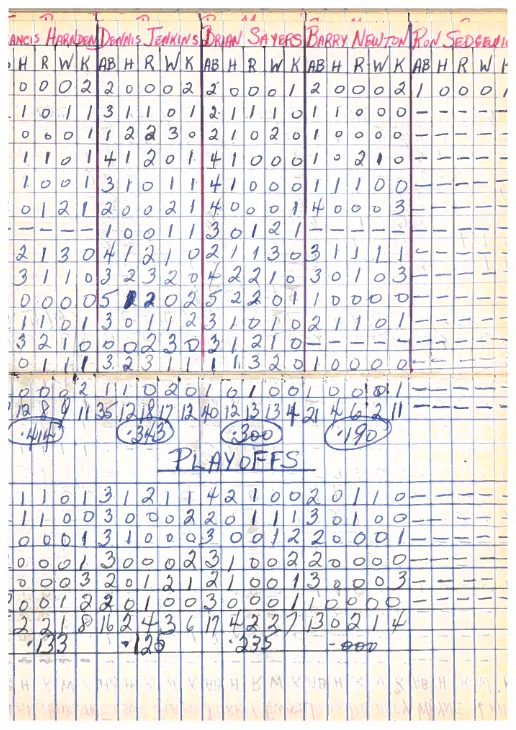 ANCIS HARNDEN DENNIS JENKINS BRIAN SAYERS BARRY NEWTON RON SEDGEWI
H R W K AB H R W K AB H R W K AB H R W K AB H R W
0 0 0 2 2 0 0 0 2 2 0 0 0 1 2 0 0 0 2 1 0 0 0 1
1 0 1 1 3 1 1 0 1 2 1 1 1 0 1 1 0 0 0 - - - -
0 0 0 1 1 2 2 3 0 2 1 0 2 0 1 0 0 0 0 - - - -
1 1 0 1 4 1 2 0 1 4 1 0 0 0 1 0 2 1 0 - - - -
1 0 0 1 3 1 0 1 1 4 1 0 0 0 1 1 1 0 0 - - - -
0 1 2 1 2 0 0 2 1 4 0 0 0 1 4 0 0 0 3 - - - -
- - - - 1 0 0 1 1 3 0 1 2 1 - - - - - - - - -
2 1 3 0 4 1 2 1 0 2 1 1 3 0 3 1 1 1 1 - - - -
3 1 1 0 3 2 3 2 0 4 2 2 1 0 3 0 1 0 3 - - - -
0 0 0 0 5 1 2 0 2 5 2 2 0 1 1 0 0 0 0 - - - -
1 1 0 1 3 0 1 1 2 3 1 0 1 0 2 1 1 0 1 - - - -
3 2 1 0 0 0 2 3 0 3 1 2 1 0 - - - - - - - - -
0 1 1 1 3 2 3 1 1 1 1 3 2 0 1 0 0 0 0 - - - -
0 0 0 2 1 1 0 2 0 1 0 1 0 0 1 0 0 0 1 - - - -
12 8 9 11 35 12 18 17 12 40 12 13 13 4 21 4 6 2 11
.414 .343 .300 .190
PLAYOFFS
1 1 0 1 3 1 2 1 1 4 2 1 0 0 2 0 1 1 0 - - - -
1 1 0 0 3 0 0 0 2 2 0 1 1 1 3 0 1 0 0 - - - -
0 0 0 1 3 1 0 0 0 3 0 0 1 2 2 0 0 0 1 - - - -
0 0 0 1 3 0 0 0 2 3 1 0 0 2 2 0 0 0 0 - - - -
0 0 0 3 2 0 1 2 1 2 1 0 0 1 3 0 0 0 3 - - - -
0 0 1 2 2 0 1 0 0 3 0 0 0 1 1 0 0 0 0 - - - -
2 2 1 8 16 2 4 3 6 17 4 2 2 7 13 0 2 1 4
.133 .125 .235 .000